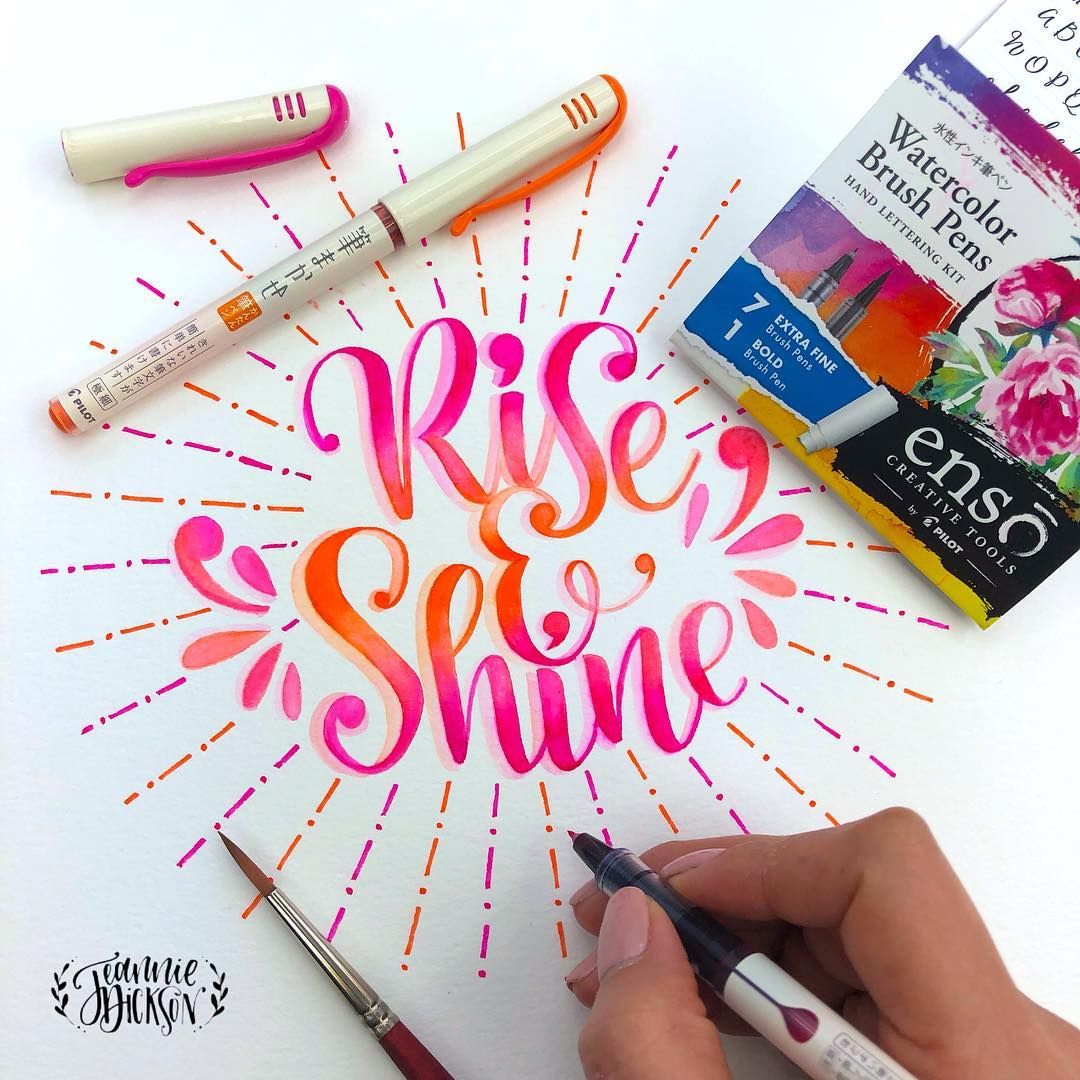 Rise
&
Shine
筆まかせ
かんたん
筆ペン
きれいな筆文字が
簡単に書けます
極細
PILOT
水性インキ筆ペン
Watercolor
Brush Pens
HAND LETTERING KIT
7 EXTRA FINE
Brush Pens
1 BOLD
Brush Pen
ensō
CREATIVE TOOLS
by PILOT
A B
N O P Q
Jeannie
Dickson